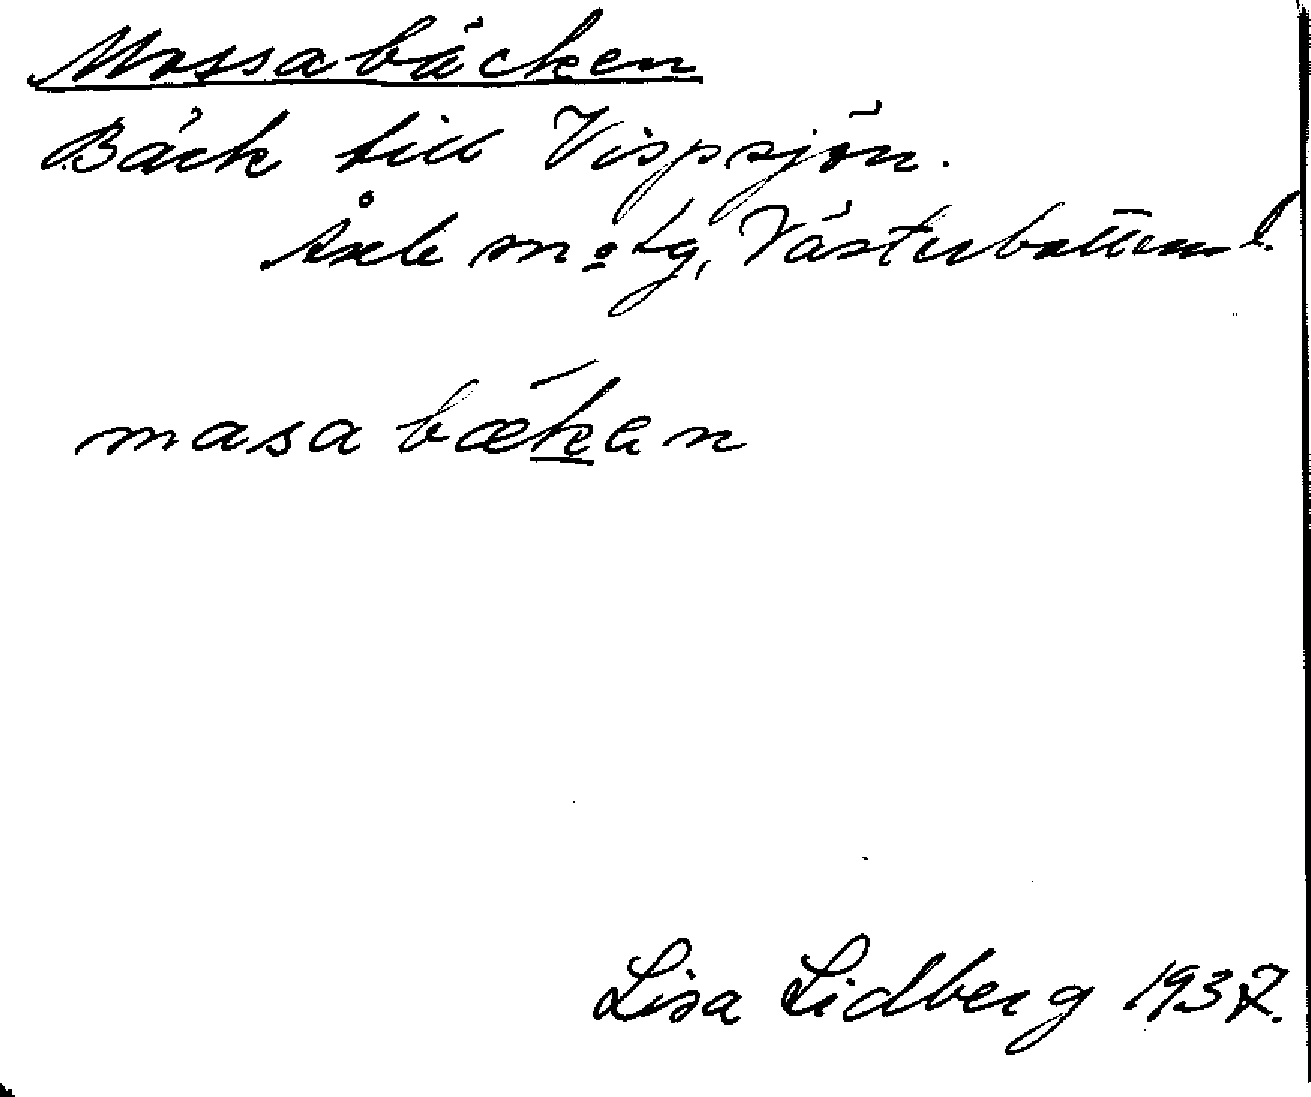 Mossabäcken
Bäck till Vispsjön.
Åsele sn o. tg, Västerbottens l.
masabækan
Lisa Lidberg 1937.